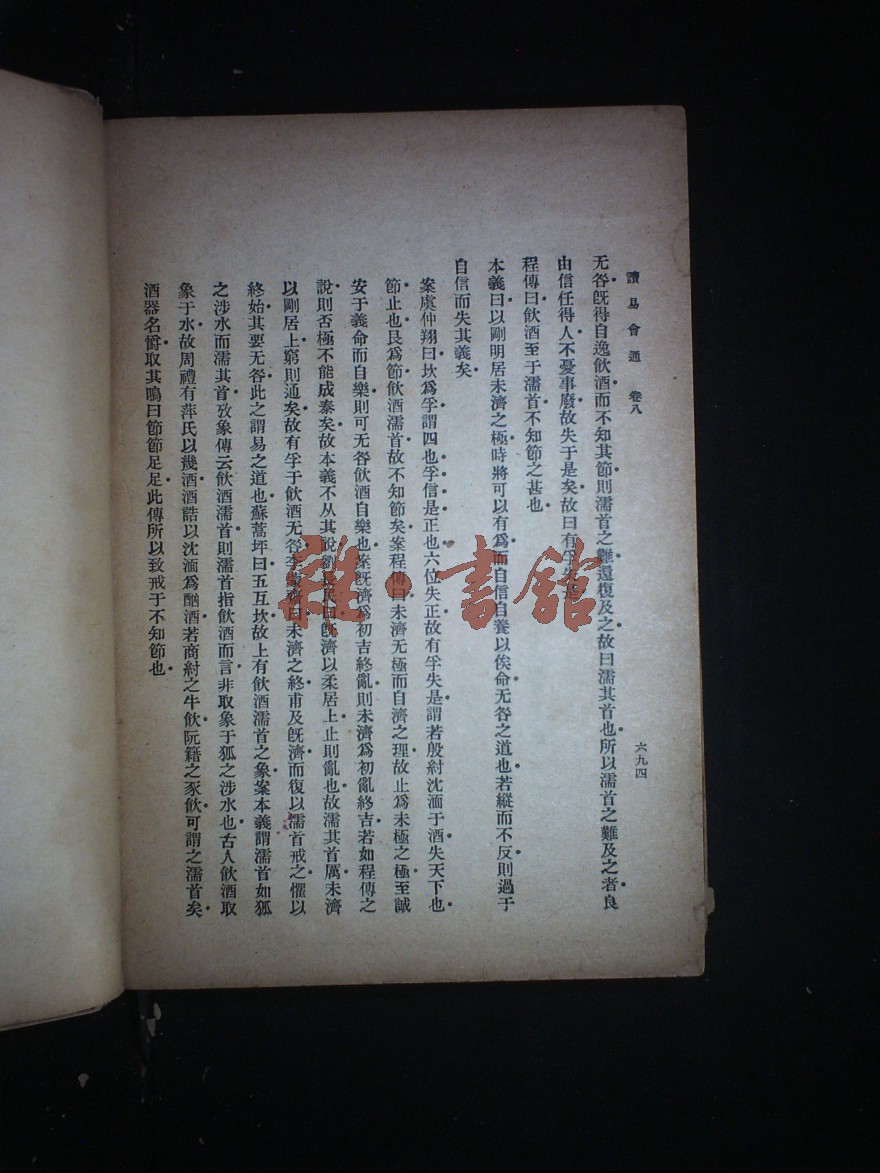 讀易會通　卷八　六九四
无咎旣得自逸飮酒而不知其節則濡首之難還復及之故曰濡其首也所以濡首之難及之者良
由信任得人不憂事廢故失于是矣故曰有孚失是
程傳曰飮酒至于濡首不知節之甚也
本義曰以剛明居未濟之極時將可以有爲而自信自養以俟命无咎之道也若縱而不反則過于
自信而失其義矣
案虞仲翔曰坎爲孚謂四也孚信是正也六位失正故有孚失是謂若殷紂沈湎于酒失天下也
節止也艮爲節飮酒濡首故不知節矣案程傳曰未濟无極而自濟之理故止爲未極之極至誠
安于義命而自樂則可无咎飮酒自樂也案旣濟爲初吉終亂則未濟爲初亂終吉若如程傳之
說則否極不能成泰矣故本義不从其說劉長民曰旣濟以柔居上止則亂也故濡其首厲未濟
以剛居上窮則通矣故有孚于飮酒无咎李 曰未濟之終甫及旣濟而復以濡首戒之懼以
終始其要无咎此之謂易之道也蘇蒿坪曰五互坎故上有飮酒濡首之象案本義謂濡首如狐
之涉水而濡其首攷象傳云飮酒濡首則濡首指飮酒而言非取象于狐之涉水也古人飮酒取
象于水故周禮有萍氏以幾酒酒誥以沈湎爲酗酒若商紂之牛飮阮籍之豕飮可謂之濡首矣
酒器名爵取其鳴曰節節足足此傳所以致戒于不知節也
雜·書舘